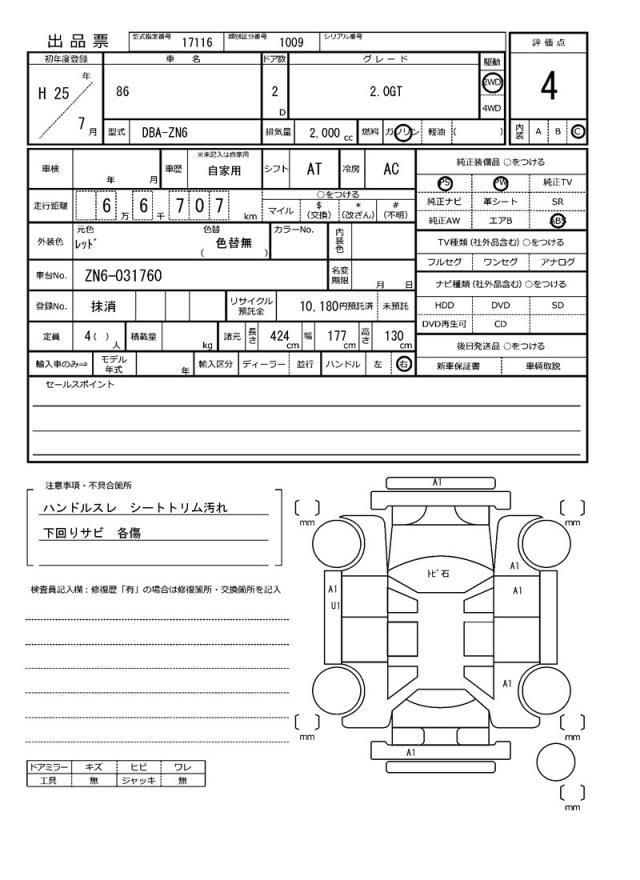 出品票
型式指定番号 17116 類別区分番号 1009 シリアル番号
評価点
初年度登録 車名 ドア数 グレード 駆動
H 25 年 7 月
86 2 D 2.0GT 2WD 4WD
4
型式 DBA-ZN6 排気量 2,000 cc 燃料 ガソリン 軽油 ( )
内装 A B C
車検 年 月 車歴 ※未記入は自家用 自家用 シフト AT 冷房 AC
走行距離 6 万 6 千 7 0 7 km
○をつける
マイル $ (交換) * (改ざん) # (不明)
外装色 元色 レッド 色替 ( 色替無 ) カラーNo. 内装色
車台No. ZN6-031760 名変期限 月 日
登録No. 抹消 リサイクル預託金 10,180円預託済 未預託
定員 4 ( ) 人 積載量 kg 諸元 長さ 424 cm 幅 177 cm 高さ 130 cm
輸入車のみ⇒ モデル年式 年 輸入区分 ディーラー 並行 ハンドル 左 右
純正装備品 ○をつける
PS PW 純正TV
純正ナビ 革シート SR
純正AW エアB ABS
TV種類(社外品含む) ○をつける
フルセグ ワンセグ アナログ
ナビ種類(社外品含む) ○をつける
HDD DVD SD
DVD再生可 CD
後日発送品 ○をつける
新車保証書 車輌取説
セールスポイント
注意事項・不具合箇所
ハンドルスレ シートトリム汚れ
下回りサビ 各傷
検査員記入欄:修復歴「有」の場合は修復箇所・交換箇所を記入
ドアミラー キズ ヒビ ワレ
工具 無 ジャッキ 無
A1
mm
mm
トビ石
A1
A1
U1
A1
A1
mm
mm
A1
mm